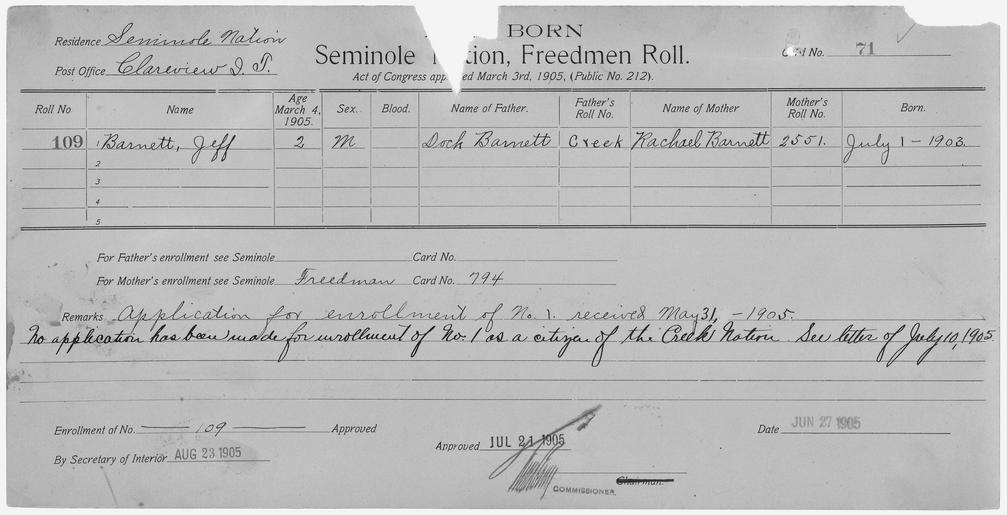 BORN
Residence Seminole Nation
Seminole tion, Freedmen Roll.
Card No. 71
Post Office Clareview I. T.
Act of Congress app ed March 3rd, 1905, (Public No. 212).
Roll No Name Age March 4, 1905. Sex. Blood. Name of Father. Father's Roll No. Name of Mother Mother's Roll No. Born.
109 1 Barnett, Jeff 2 M Dock Barnett Creek Rachael Barnett 2551. July 1 - 1903.
2
3
4
5
For Father's enrollment see Seminole Card No.
For Mother's enrollment see Seminole Freedman Card No. 794
Remarks Application for enrollment of No. 1. received May 31, - 1905.
No application has been made for enrollment of No. 1 as a citizen of the Creek Nation. See letter of July 10, 1905.
Enrollment of No. 109 Approved
Date JUN 27 1905
Approved JUL 21 1905
By Secretary of Interior AUG 23 1905
COMMISSIONER.
Chairman.